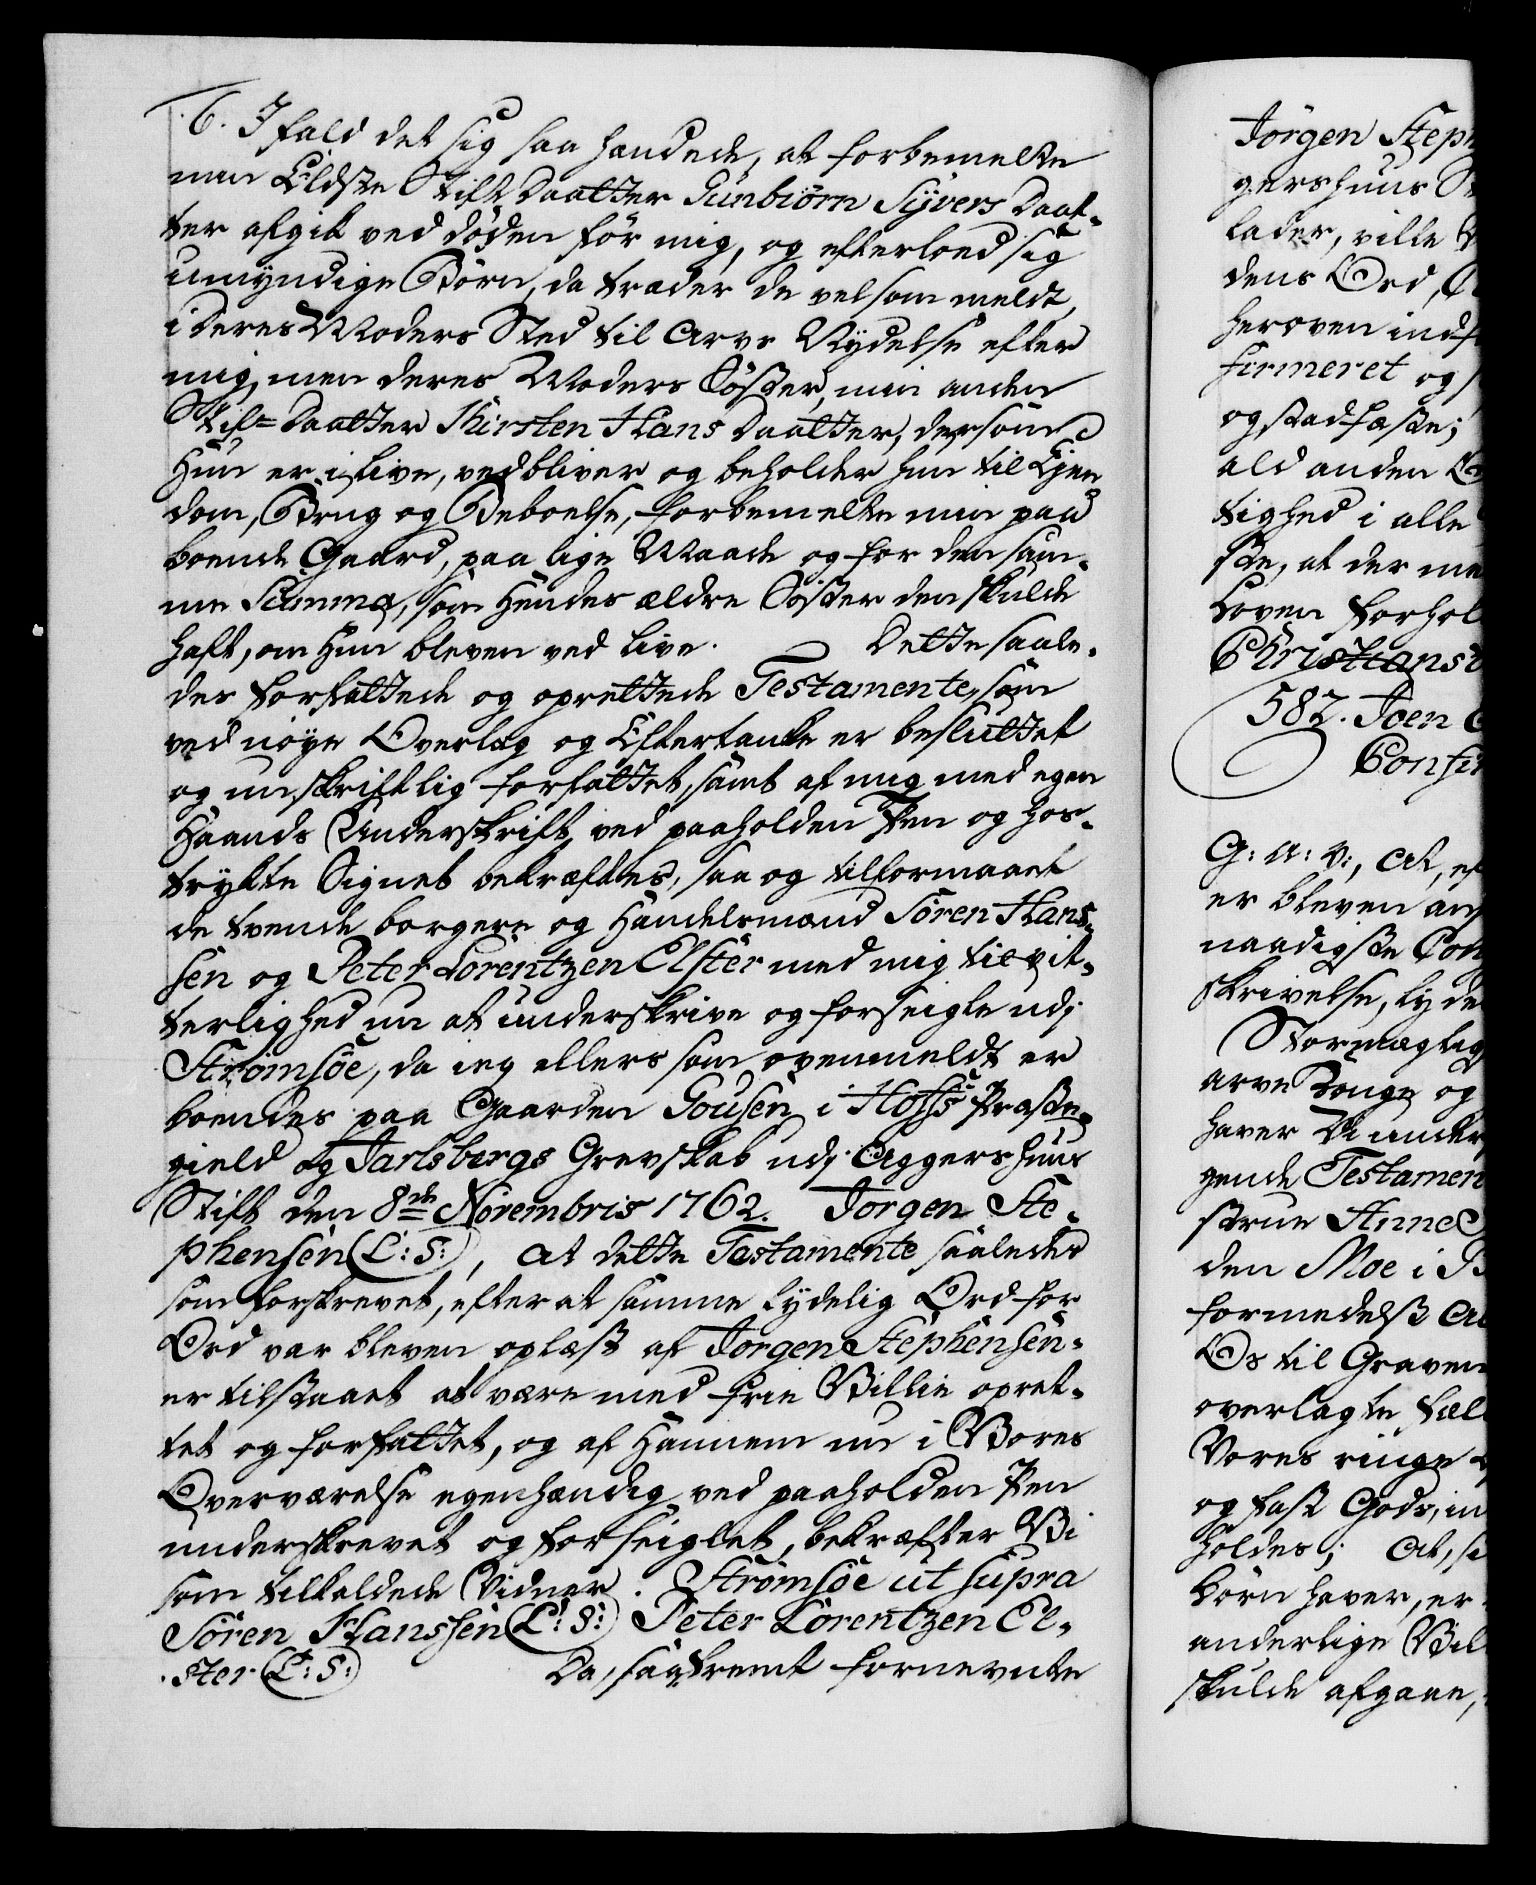 6. Ifald det sig saa hændede, at forbemelte
min Eldste Stifdaatter Gunbiörn Syvers Daat-
ter afgik ved döden för mig, og efterloed sig
umyndige Börn, da træder de vel som meldt,
i deres Moders Sted til Arvs Nydelse efter
mig, men deres Moders Söster, min anden
Stif-Daatter Kirsten Hans Daatter, dersom
Hun er i Live, vedbliver og beholder hun til Ejen-
dom, Brug og Beboelse, forbemelte min paa-
boende Gaard, paa lige Maade og for den sam-
me Summa, som hendes ældre Söster den skulde
haft, om Hun bleven ved live. Dette saale-
des forfattede og oprettede Testamente, som
ved nöye Overlæg og Eftertanke er besluttet
og nu skriftlig forfattet, samt af mig med egen
Haands Underskrift, ved paaholden Pen og hos-
trykte Signet bekræftes, saa og tilformaaet
de tvende borgere og Handelsmænd Sören Hans-
sen og Peter Lorentzen Elster med mig til vit-
terlighed nu at underskrive og forseigle udi
Strömsöe, da ieg ellers som ovenmeldt er
boendes paa Gaarden Gousen i Hoffs Præste-
gield og Jarlsbergs Grevskab udj Aggershuus
Stift den 8de Novembris 1762. Jörgen Ste-
phensen (L:S:), At dette Testamente saaledes
som forskrevet, efter at samme lydelig Ord for
Ord var bleven oplæst af Jörgen Stephensen-
er tilstaaet at være med frie Villie opret-
tet og forfattet, og af Hannem nu i Vores
Overværelse egenhændig ved paaholden Pen
underskrevet og forseiglet, bekræfter Vi
som tilkaldede Vidner. Strömsöe ut supra
Sören Hanssen (L:S:) Peter Lorentzen El-
ster (L:S:) Da, saasom fornevnte
Jörgen Steph
gershuus St
lader, ville V
dens Ord,
herover indf
firmeret og
og stadfæste;
ald anden
tighed i alle
ste, at der me
Loven forhol
Christiansb
582. Joen
Confir
G: A: V:, At, ef
er bleven an
naadigste Con
skrivelse, lyde
Stormægtig
arve Konge og
haver Vi under
gende Testamen
strue Anne
den Moe i B
formedelst Al
Os til Graven
overlagte fæl
Vores ringe
og fast Gods, in
holdes; At, si
börn haver, er
anderlige Vil
skulde afgaae,